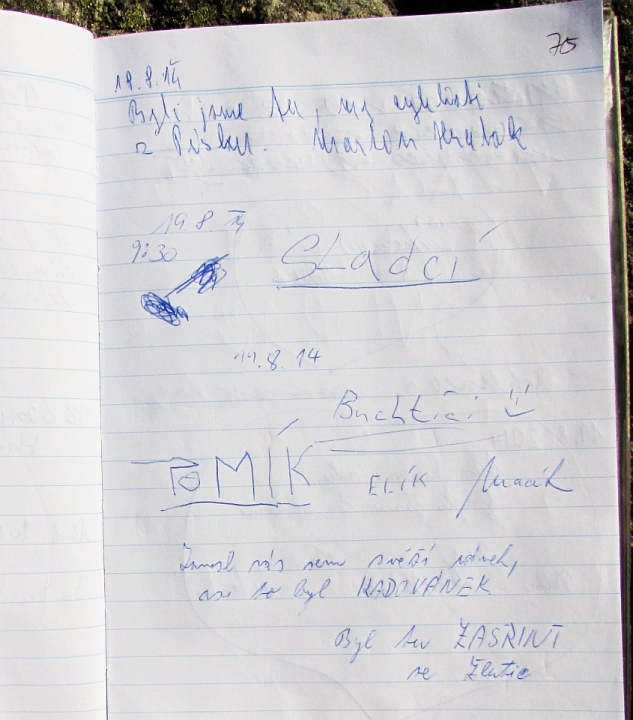 75
18.8.14
Byli jsme tu, my cyklisti
z Písku. Marton Hrubok
19 8. 14
9:30
SLadcí
19.8.14
Buchtičí
TOMÍK ELÍK
vás sem svěží vánek,
asi to byl RADOVÁNEK
Byl tu ŽASŘINT
ze Žlutic